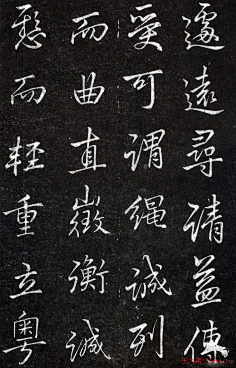 遠尋請益傳
受可謂繩誠列
而曲直徵衡誠
懸而輕重立粵